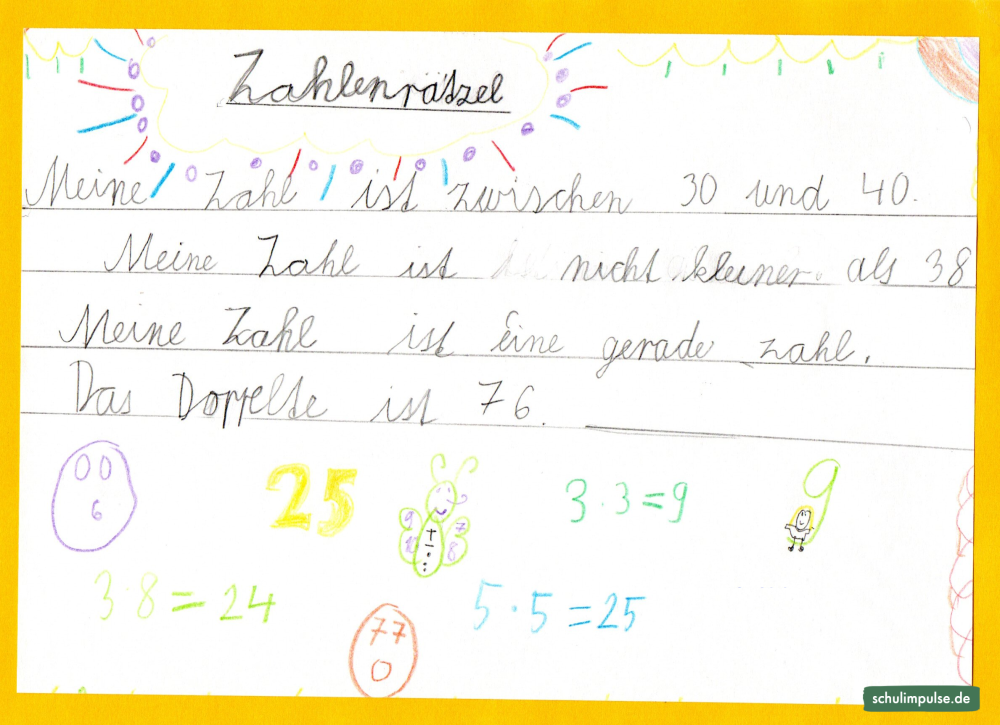 Zahlenrätsel
Meine Zahl ist zwischen 30 und 40.
Meine Zahl ist nicht kleiner als 38
Meine Zahl ist eine gerade zahl.
Das Doppelte ist 76.
00
6
25
9
7
8
3·3=9
9
3·8=24
77
0
5·5=25
schulimpulse.de